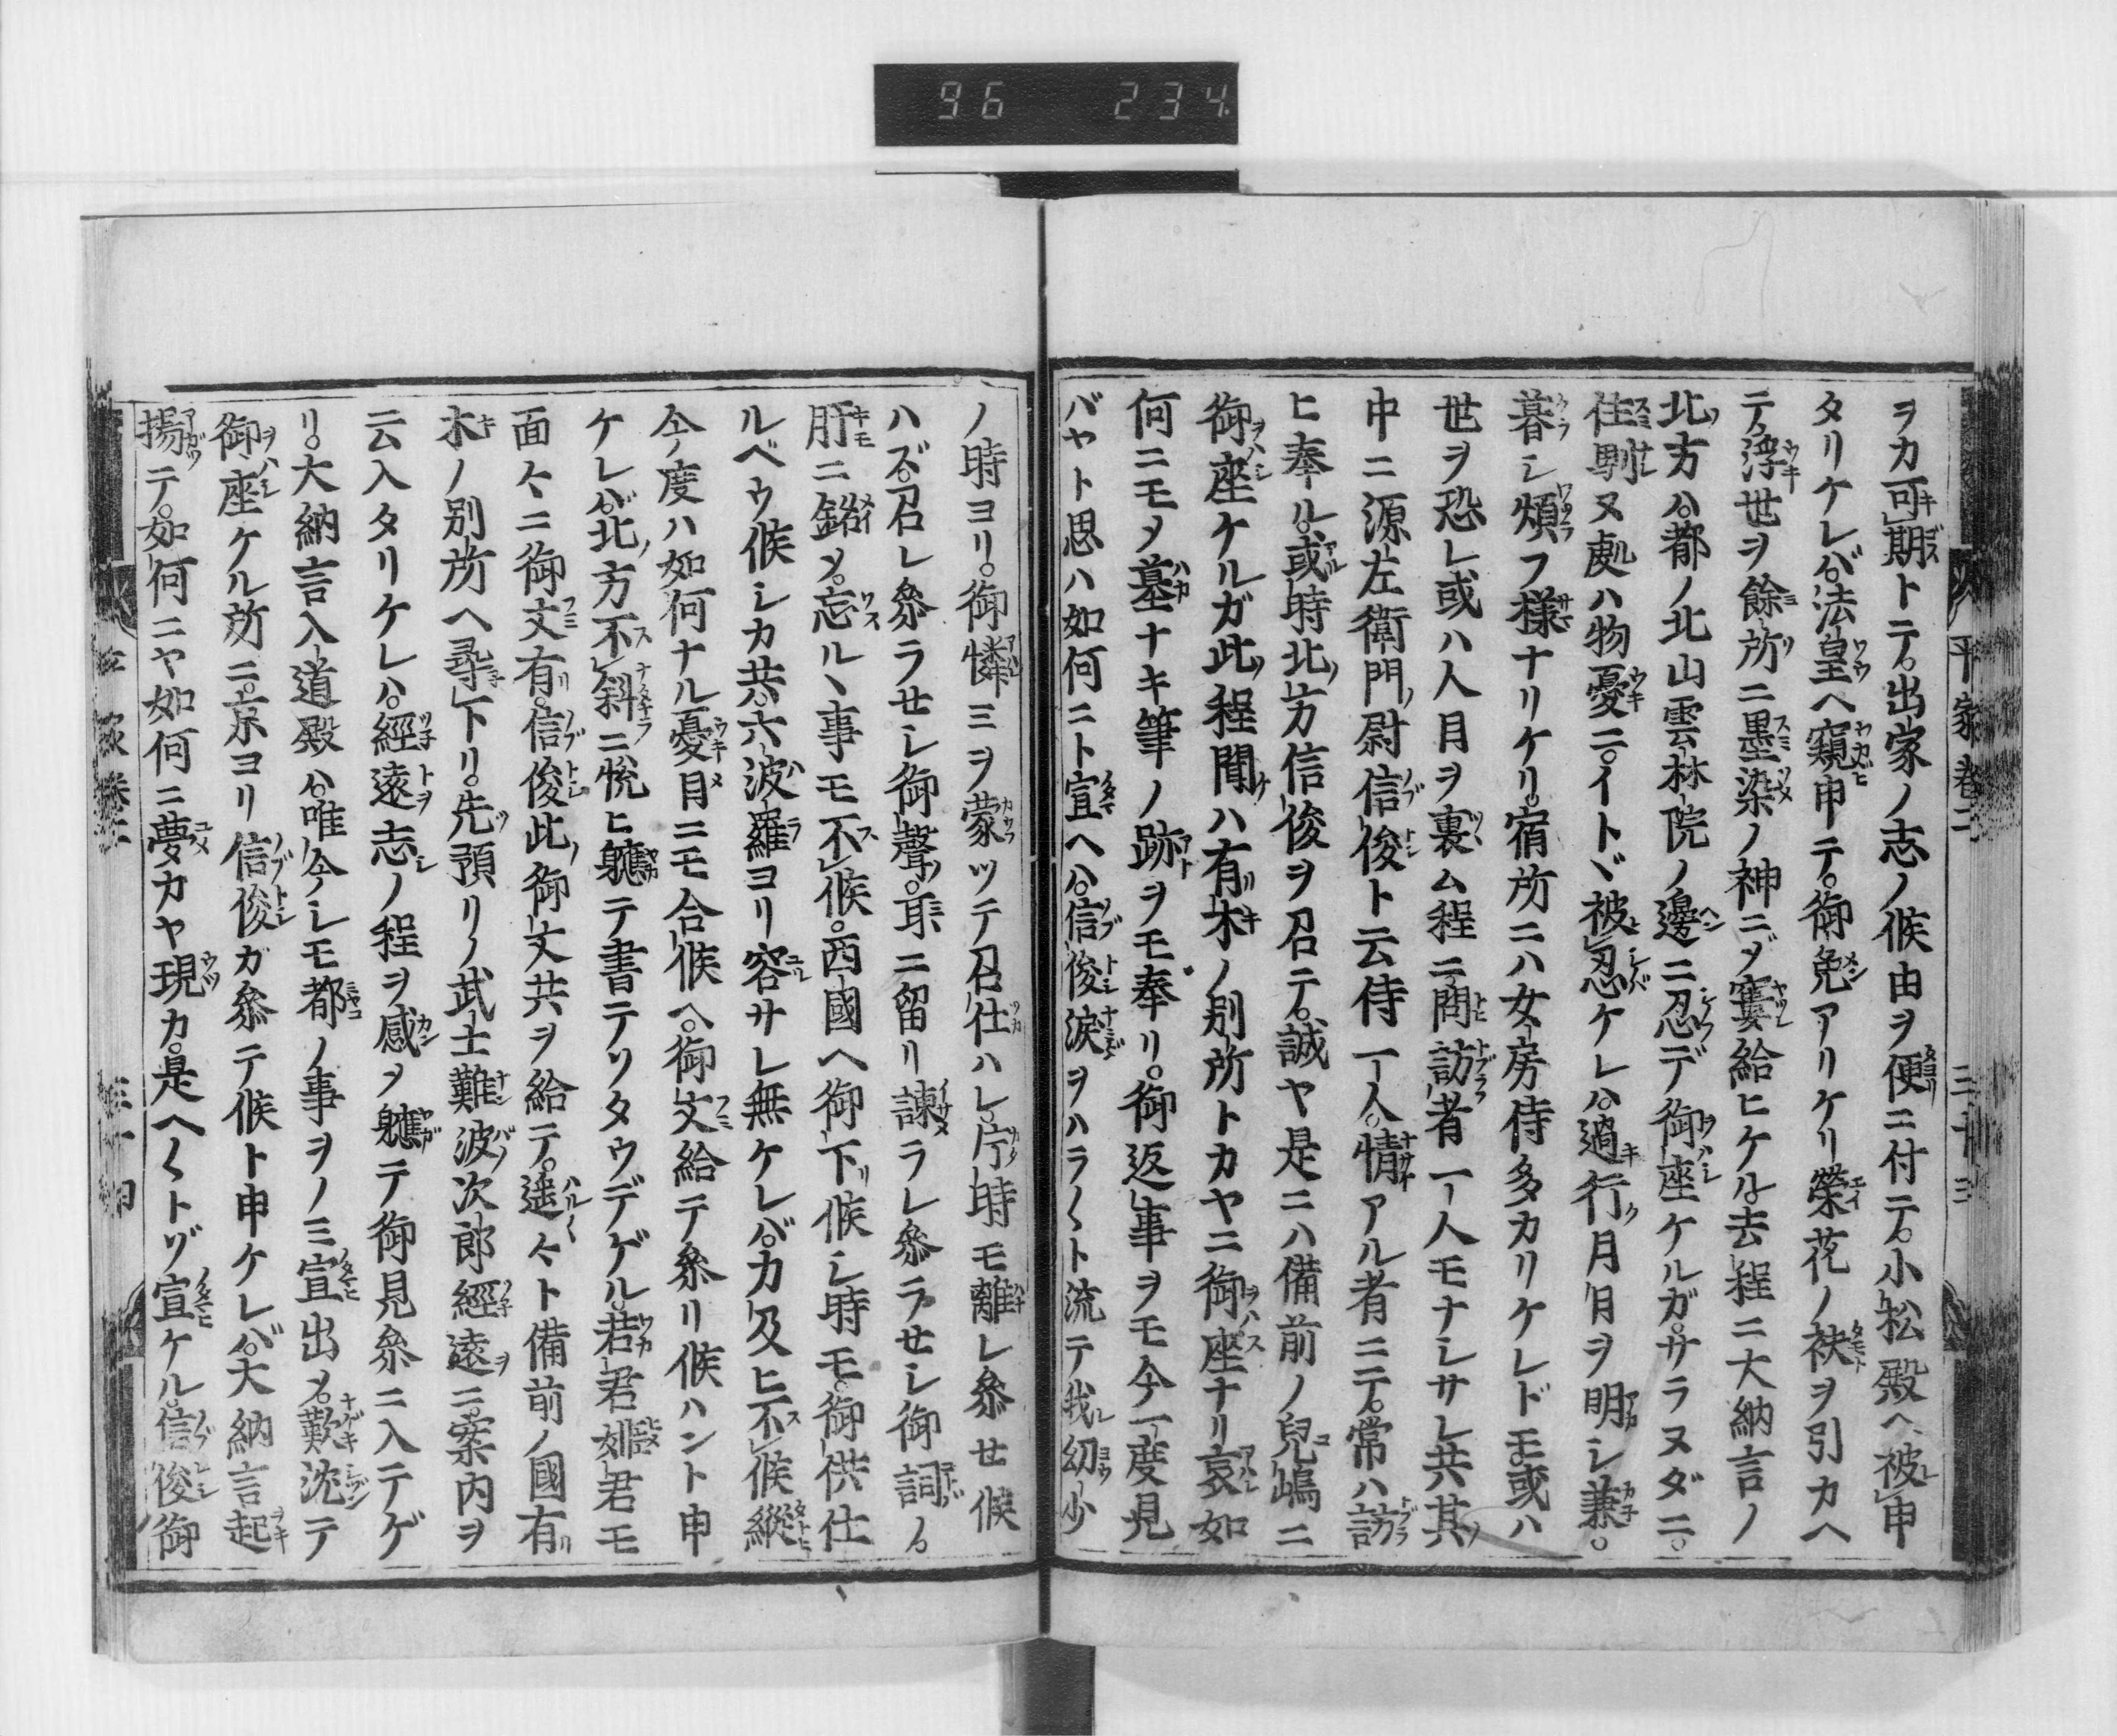 96 234
平家巻二 三十三
ヲカ可期トテ。出家ノ志ノ候由ヲ便ニ付テ。小松殿ヘ被申
タリケレバ。法皇ヘ窺申テ。御免アリケリ榮花ノ袂ヲ引カヘ
テ。浮世ヲ餘所ニ墨染ノ神ニゾ窶給ヒケル。去程ニ大納言ノ
北方ハ。都ノ北山雲林院ノ邊ニ忍デ御座ケルガ。サラヌダニ。
住馴ヌ處ハ物憂ニ。イトヾ被忍ケレハ。過行月日ヲ明シ兼。
暮シ煩フ様ナリケリ。宿所ニハ女房侍多カリケレドモ。或ハ
世ヲ恐レ或ハ人目ヲ裏ム程ニ。問訪者一人モナシサレ共其
中ニ源左衛門尉信俊ト云侍一人。情アル者ニテ。常ハ訪
ヒ奉ル。或時北方信俊ヲ召テ。誠ヤ是ニハ備前ノ兒嶋ニ
御座ケルガ此程聞ハ有木ノ別所トカヤニ御座ナリ哀如
何ニモメ墓ナキ筆ノ跡ヲモ奉リ。御返事ヲモ今一度見
バヤト思ハ如何ニト宣ヘハ。信俊涙ヲハラ〱ト流テ我幼少
ノ時ヨリ。御憐ミヲ蒙ツテ召仕ハレ。片時モ離レ參セ候
ハズ。召レ參ラセシ御聲。耳ニ留リ諫ラレ參ラセシ御詞ノ。
肝ニ銘メ。忘ルヽ事モ不候。西國ヘ御下候シ時モ。御供仕
ルベウ候シカ共。六波羅ヨリ容サレ無ケレバ。力及ヒ不候縱
今度ハ如何ナル憂目ニモ合候ヘ。御文給テ參リ候ハント申
ケレバ。北方不斜ニ悦ヒ軈テ書テソタウデゲル。若君姫君モ
面々ニ御文有。信俊此御文共ヲ給テ。遥々ト備前ノ國有
木ノ別所ヘ尋下リ。先預リノ武士難波次郎經遠ニ。案内ヲ
云入タリケレハ。經遠志ノ程ヲ感メ軈テ御見參ニ入テゲ
リ。大納言入道殿ハ。唯今シモ都ノ事ヲノミ宣出メ。歎沈テ
御座ケル所ニ。京ヨリ信俊ガ參テ候ト申ケレバ。大納言起
揚テ。如何ニヤ如何ニ夢カヤ現カ。是ヘ〱トゾ宣ケル。信俊御